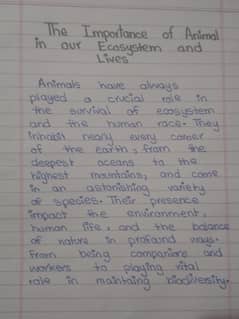 The Importance of Animal
in our Ecosystem and
Lives
Animals have always
played a crucial role in
the survival of ecosystem
and the human race. They
inhabit nearly every corner
of the earth, from the
deepest oceans to the
highest mountains, and come
in an astonishing variety
of species. Their presence
impact the environment,
human life, and the balance
of nature in profound ways.
From being companions and
workers to playing vital
role in maintaing biodiversity.